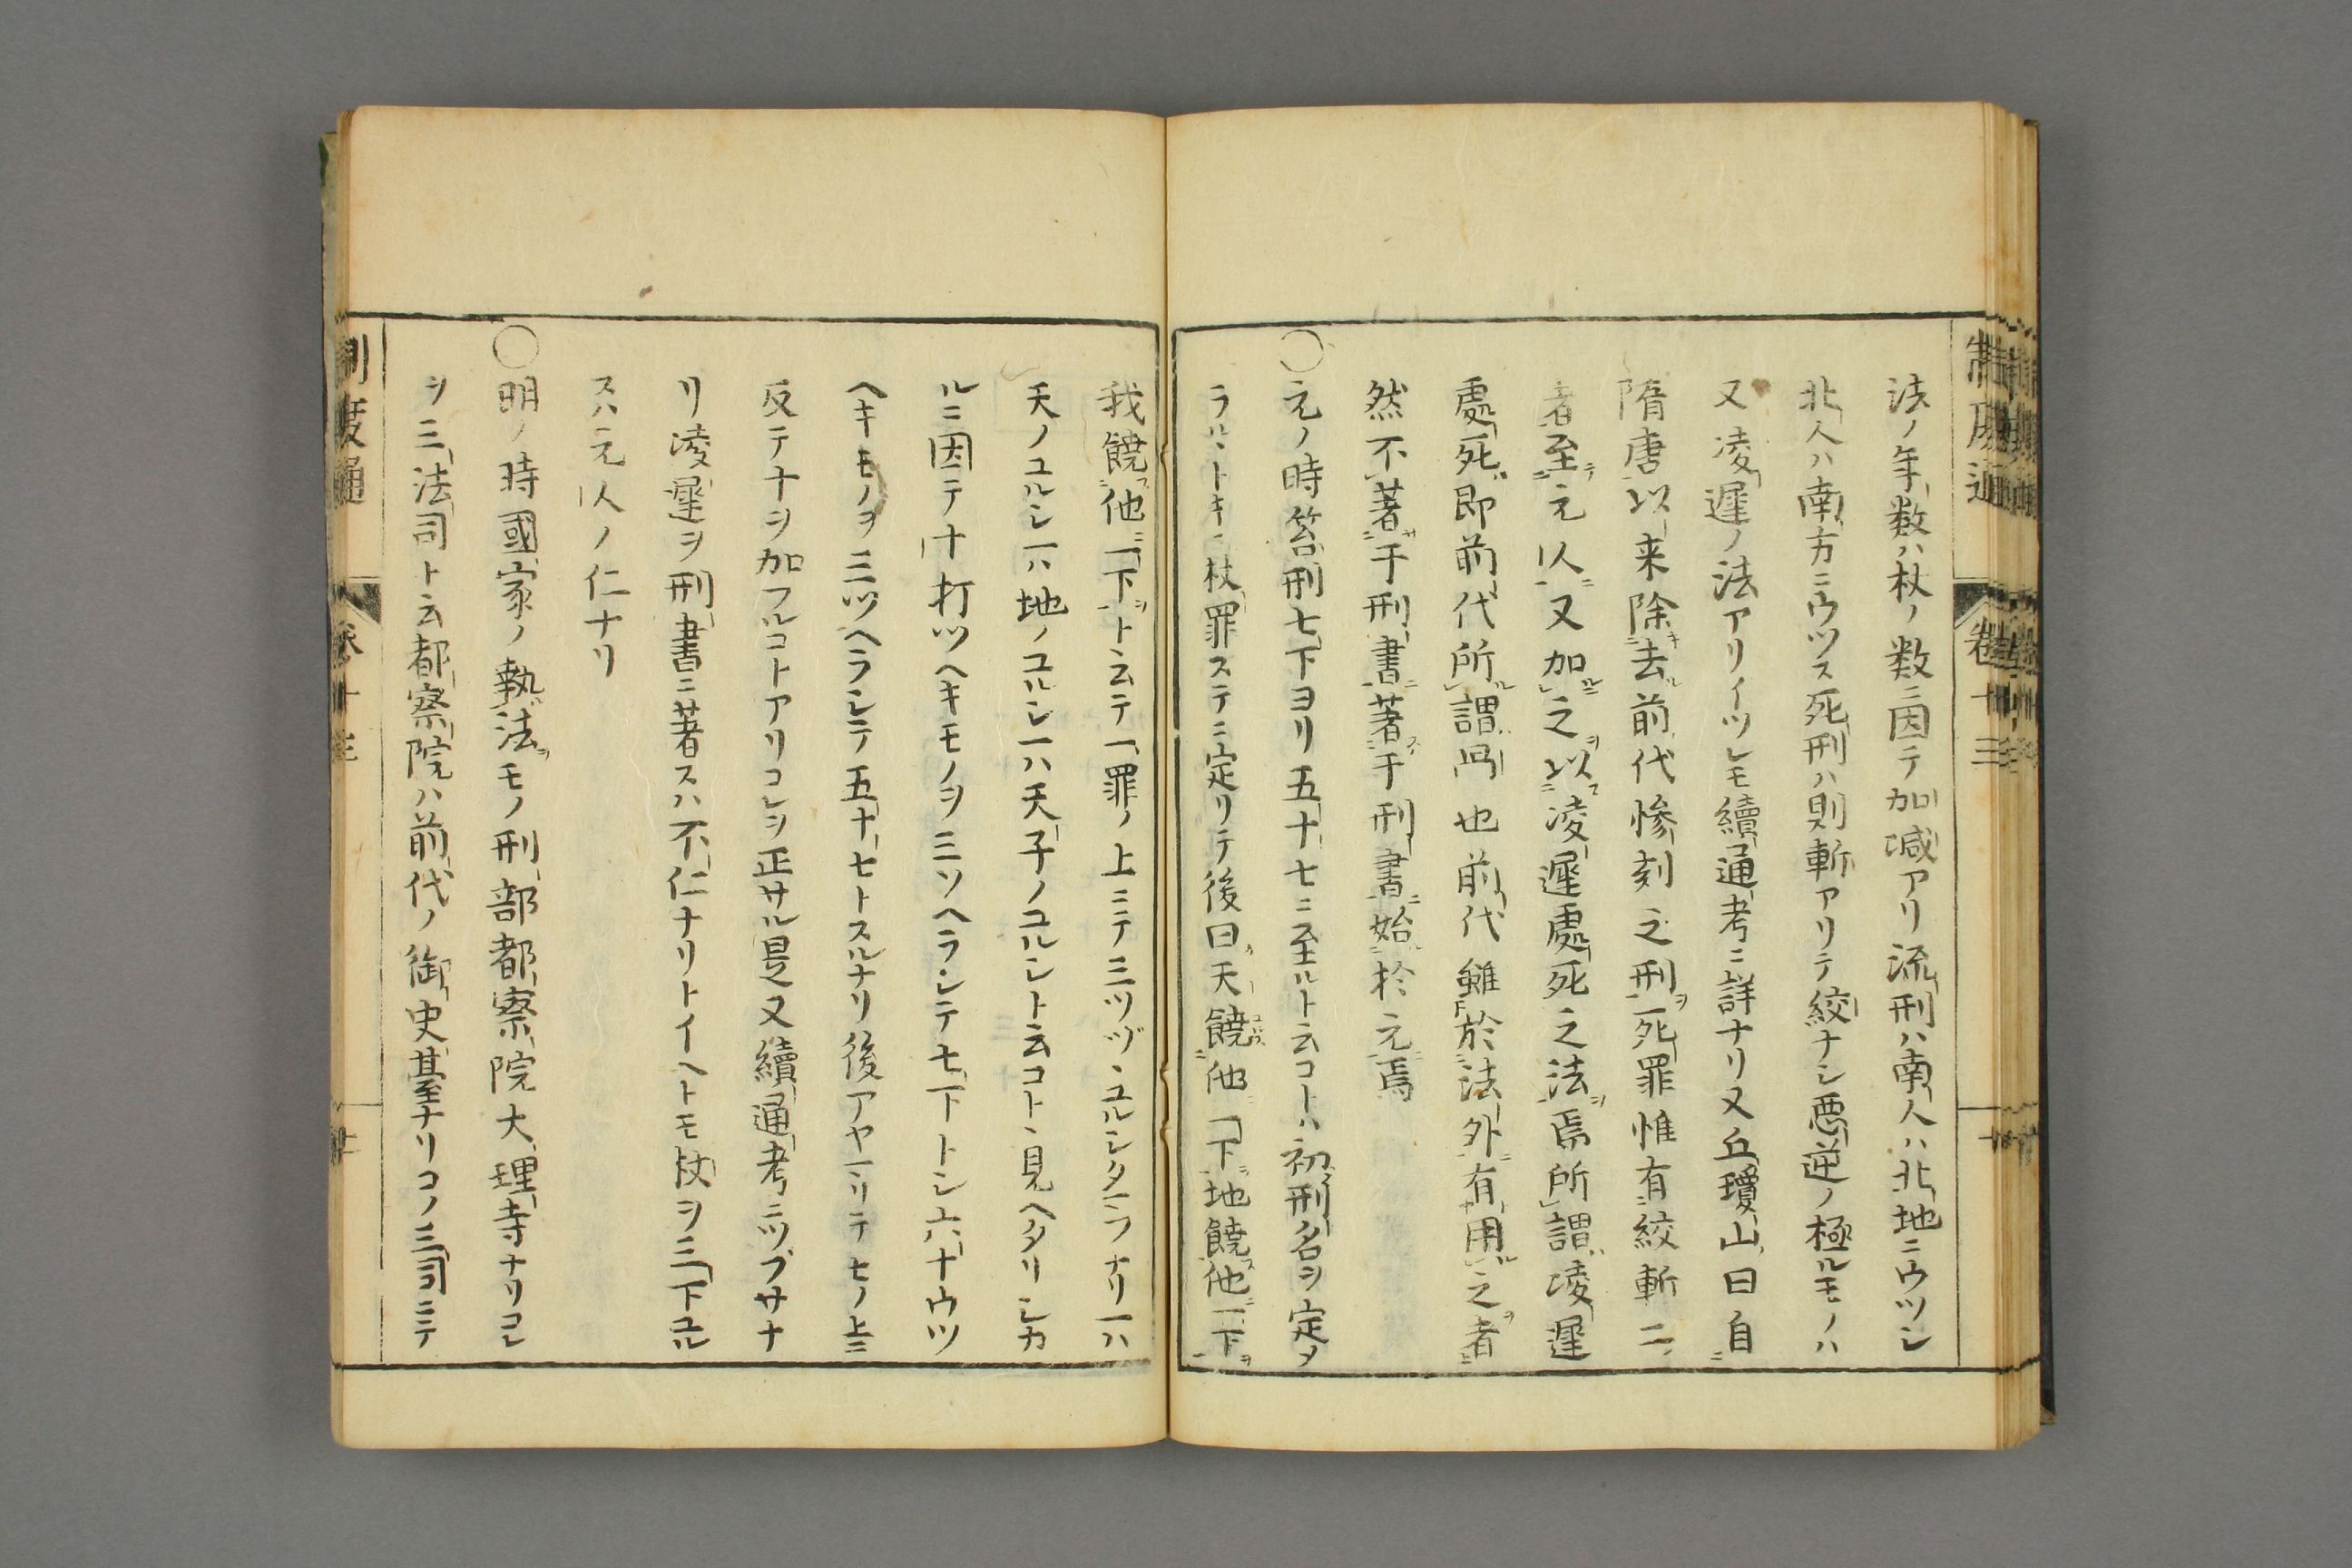 法ノ年数ハ杖ノ数ニ因テ加减アリ流刑ハ南人ハ北地ニウツシ
北人ハ南方ニウツス死刑ハ則斬アリテ絞ナシ悪逆ノ極ルモノハ
又凌遲ノ法アリイツレモ續通考ニ詳ナリ又丘瓊山曰自
隋唐以来除去前代惨刻之刑死罪惟有絞斬二
者至元人又加之以凌遲處死之法焉所謂凌遲
處死即前代所謂冎也前代雖於法外有用之者
然不著于刑書著于刑書始於元焉
○元ノ時笞刑七下ヨリ五十七ニ至ルト云コトハ初刑名ヲ定メ
ラルヽトキニ杖罪ステニ定リテ後曰天饒他一下地饒他一下
我饒他一下ト云テ一罪ノ上ニテ三ツヅヽユルシタマフナリ一ハ
天ノユルシ一ハ地ノユルシ一ハ天子ノユルシト云コトヽ見ヘタリシカ
ルニ因テ十打ツヘキモノヲ三ツヘラシテ七下トシ六十ウツ
ヘキモノヲ三ツヘラシテ五十七トスルナリ後アヤマリテ七ノ上ニ
反テ十ヲ加フルコトアリコレヲ正サル是又續通考ニツブサナ
リ凌遲ヲ刑書ニ著スハ不仁ナリトイヘトモ杖ヲ三下ユル
スハ元人ノ仁ナリ
○明ノ時國家ノ執法モノ刑部都察院大理寺ナリコレ
ヲ三法司ト云都察院ハ前代ノ御史臺ナリコノ三司ニテ
制度通
巻十三